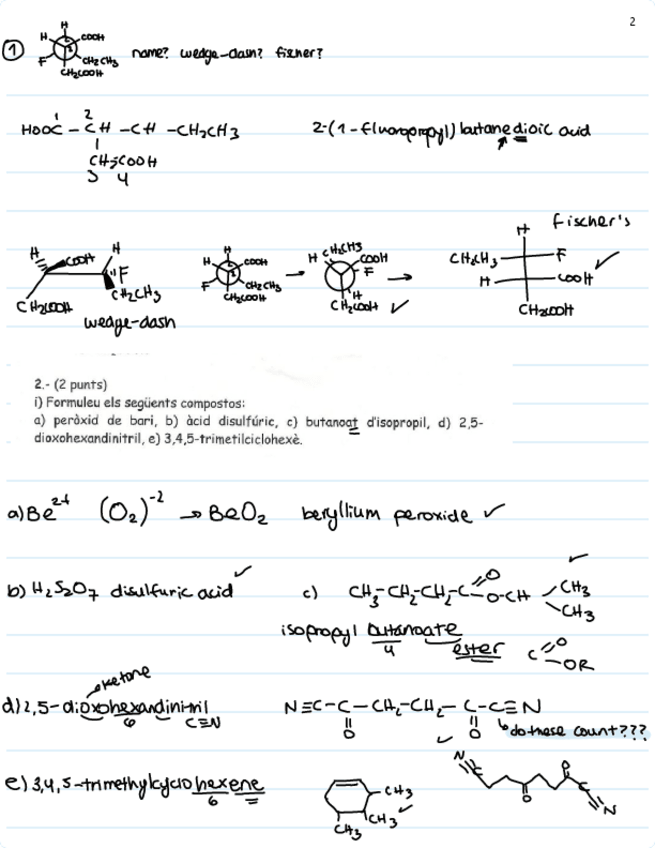 2
① H H COOH F CH2CH3 CH2COOH name? wedge-dash? fisher?
1 2
HOOC - CH - CH - CH2CH3 2-(1-fluoropropyl) butanedioic acid
CH2COOH
3 4
Fischer's
H COOH H F CH2CH3 CH2COOH
H H COOH F CH2CH3 CH2COOH → H CH2CH3 COOH F H CH2COOH ✓ →
H CH2CH3 F H COOH CH2COOH ✓
wedge-dash
2.- (2 punts)
i) Formuleu els següents compostos:
a) peròxid de bari, b) àcid disulfúric, c) butanoat d'isopropil, d) 2,5-
dioxohexandinitril, e) 3,4,5-trimetilciclohexè.
a) Be2+ (O2)-2 → BeO2 beryllium peroxide ✓
b) H2S2O7 disulfuric acid ✓ c) CH3-CH2-CH2-C O O-CH CH3 CH3 ✓
isopropyl butanoate
4 ester C O OR
ketone
d) 2,5-dioxohexandinitril N≡C-C-CH2-CH2-C-C≡N
6 C≡N O O ✓ do these count???
e) 3,4,5-trimethylcyclohexene CH3 CH3 CH3 ✓ N O O N
6